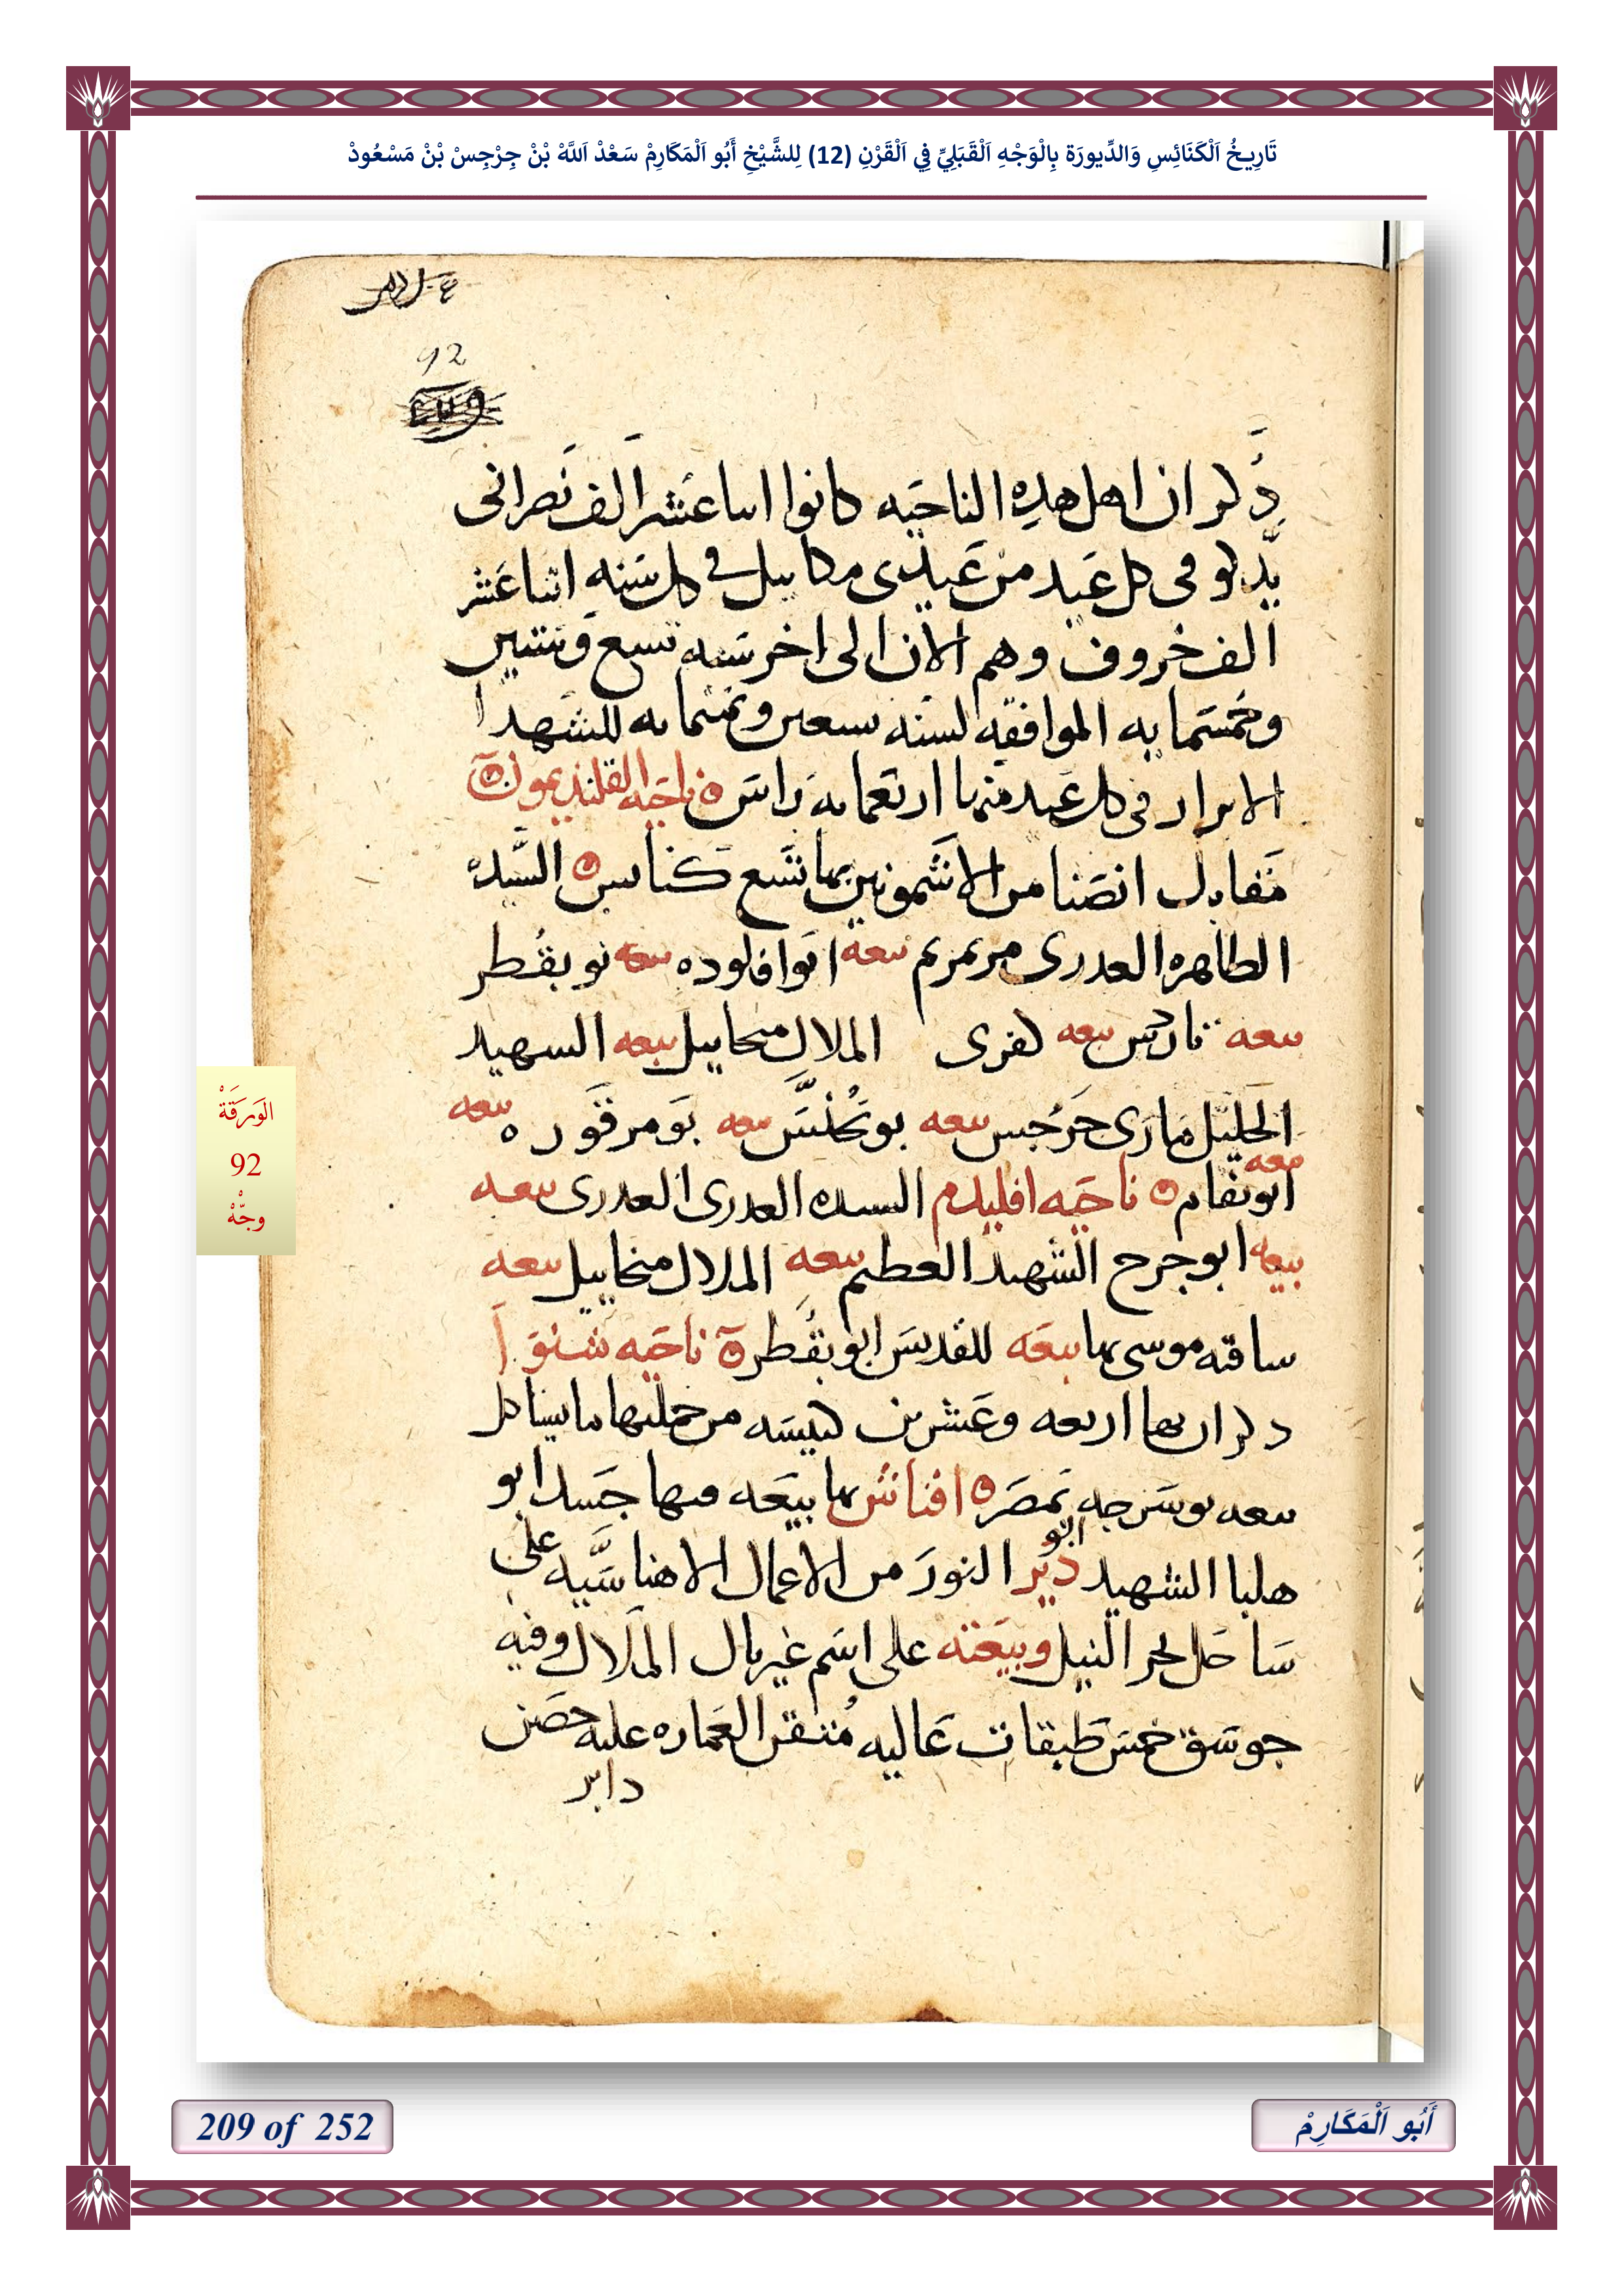 تَارِيخُ اَلْكَنَائِسِ وَالدِّيورَة بِالْوَجْهِ اَلْقَبَلِيِّ فِي اَلْقَرْنِ (12) لِلشَّيْخِ أَبُو اَلْمَكَارِمْ سَعْدْ اَللَّهْ بْنْ جِرْجِسْ بْنْ مَسْعُودْ
92
ذكر ان اهل هده الناحيه كانوا اتنا عشر الف نصرانى
يدكو فى كل عيد من عيدى مكاييل فى كل سنه اثنا عشر
الف خروف وهم الان الى اخر سنه تسع وستين
وخمسمايه الموافقه لسنه سعين وثمنمايه للشهدا
الابرار فى كل عيد منها اربعمايه راس ناحيه القلنديمون
مقابل انصنا من الاشمونين بها تسع كنايس السيده
الطاهره العدرى مرتمريم بيعه ابوا فلوده بيعه بو بقطر
بيعه تادرس بيعه كفرى الملاك ميخاييل بيعه السهيد
الجليل مارى جرجس بيعه بو يحنس بيعه بو مرقوره بيعه
بيعه
ابو بفام ناحيه اقليدم السيده العدرى العدرى بيعه
بيعه ابو جرج الشهيد العظيم بيعه الملاك ميخاييل بيعه
ساقيه موسى بها بيعه للقديس ابو بقطر ناحيه شنوا
دكر ان بها اربعه وعشرين كنيسه من جملتها ما يشاكل
بيعه بو سرجه بمصر افنانش بها بيعه فيها جسد ابو
هلبا الشهيد دير ابو النور من الاعمال الاهناسيه على
ساحل بحر النيل وبيعته على اسم غبريال الملاك وفيه
جوسق خمس طبقات عاليه متقن العماره عليه حصن
داير
الوَرَقَةْ
92
وجّهْ
209 of 252
أَبُو اَلْمَكَارِمْ